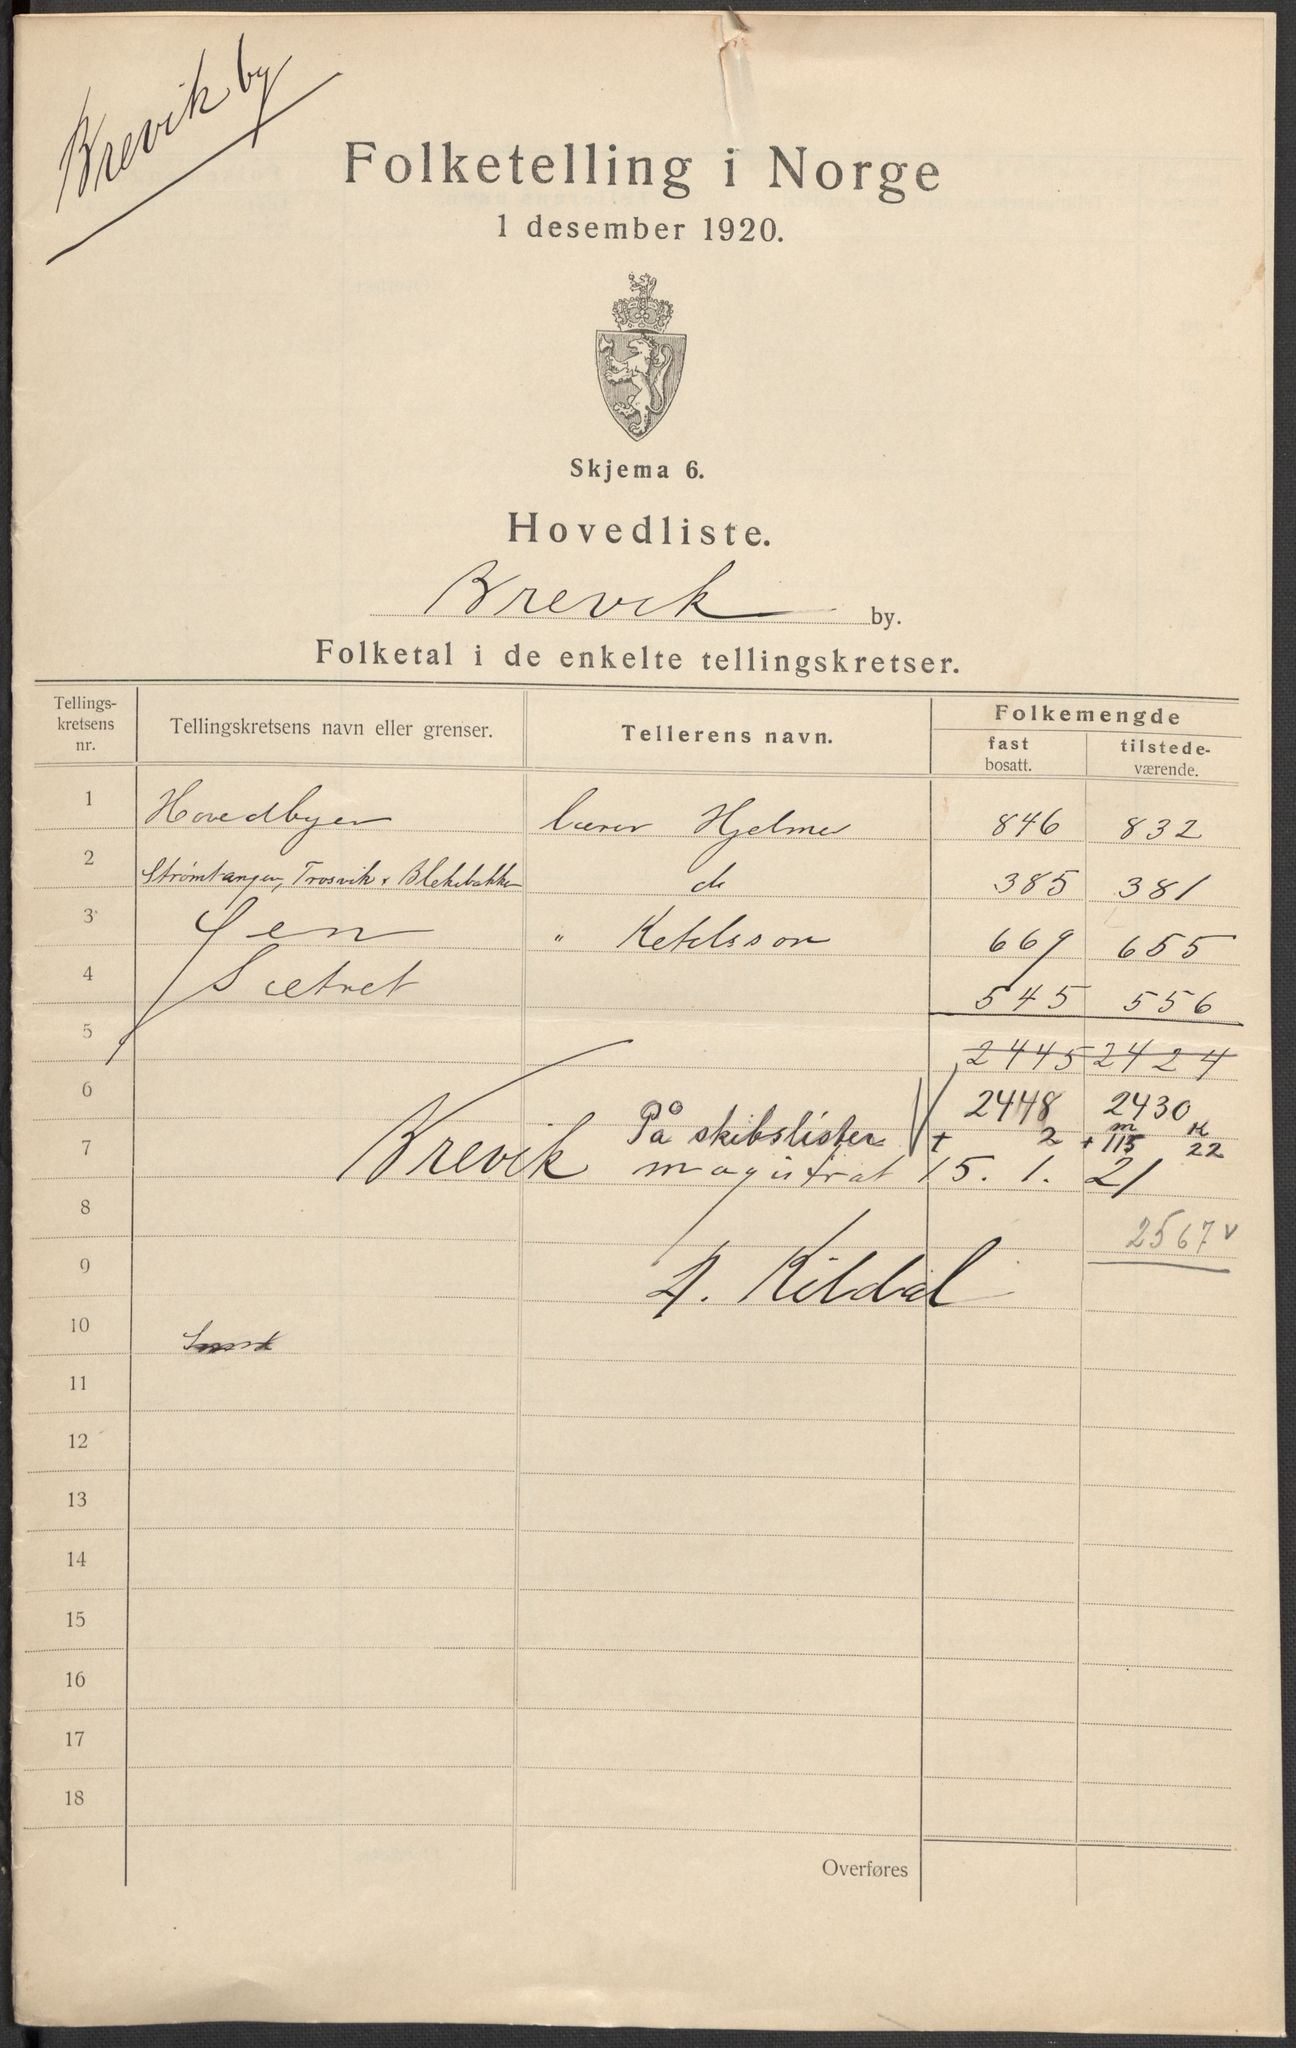 Brevik by
Folketelling i Norge
1 desember 1920.
Skjema 6.
Hovedliste.
Brevik by.
Folketal i de enkelte tellingskretser.
Tellings-
kretsens
nr.
Tellingskretsens navn eller grenser.
Tellerens navn.
Folkemengde
fast
bosatt.
tilstede-
værende.
1 Hovedbyen lærer Hjelme 846 832
2 Strømtangen, Trosvik & Blekebakken do 385 381
3 Øen " Ketelsson 669 655
4 Sætret 545 556
5 2445 2424
6 2448 2430
På skibslister + 2 + m 115 k 22
7 Brevik magistrat 15. 1. 21
8 2567 v
9 Kildal
10
11
12
13
14
15
16
17
18
Overføres